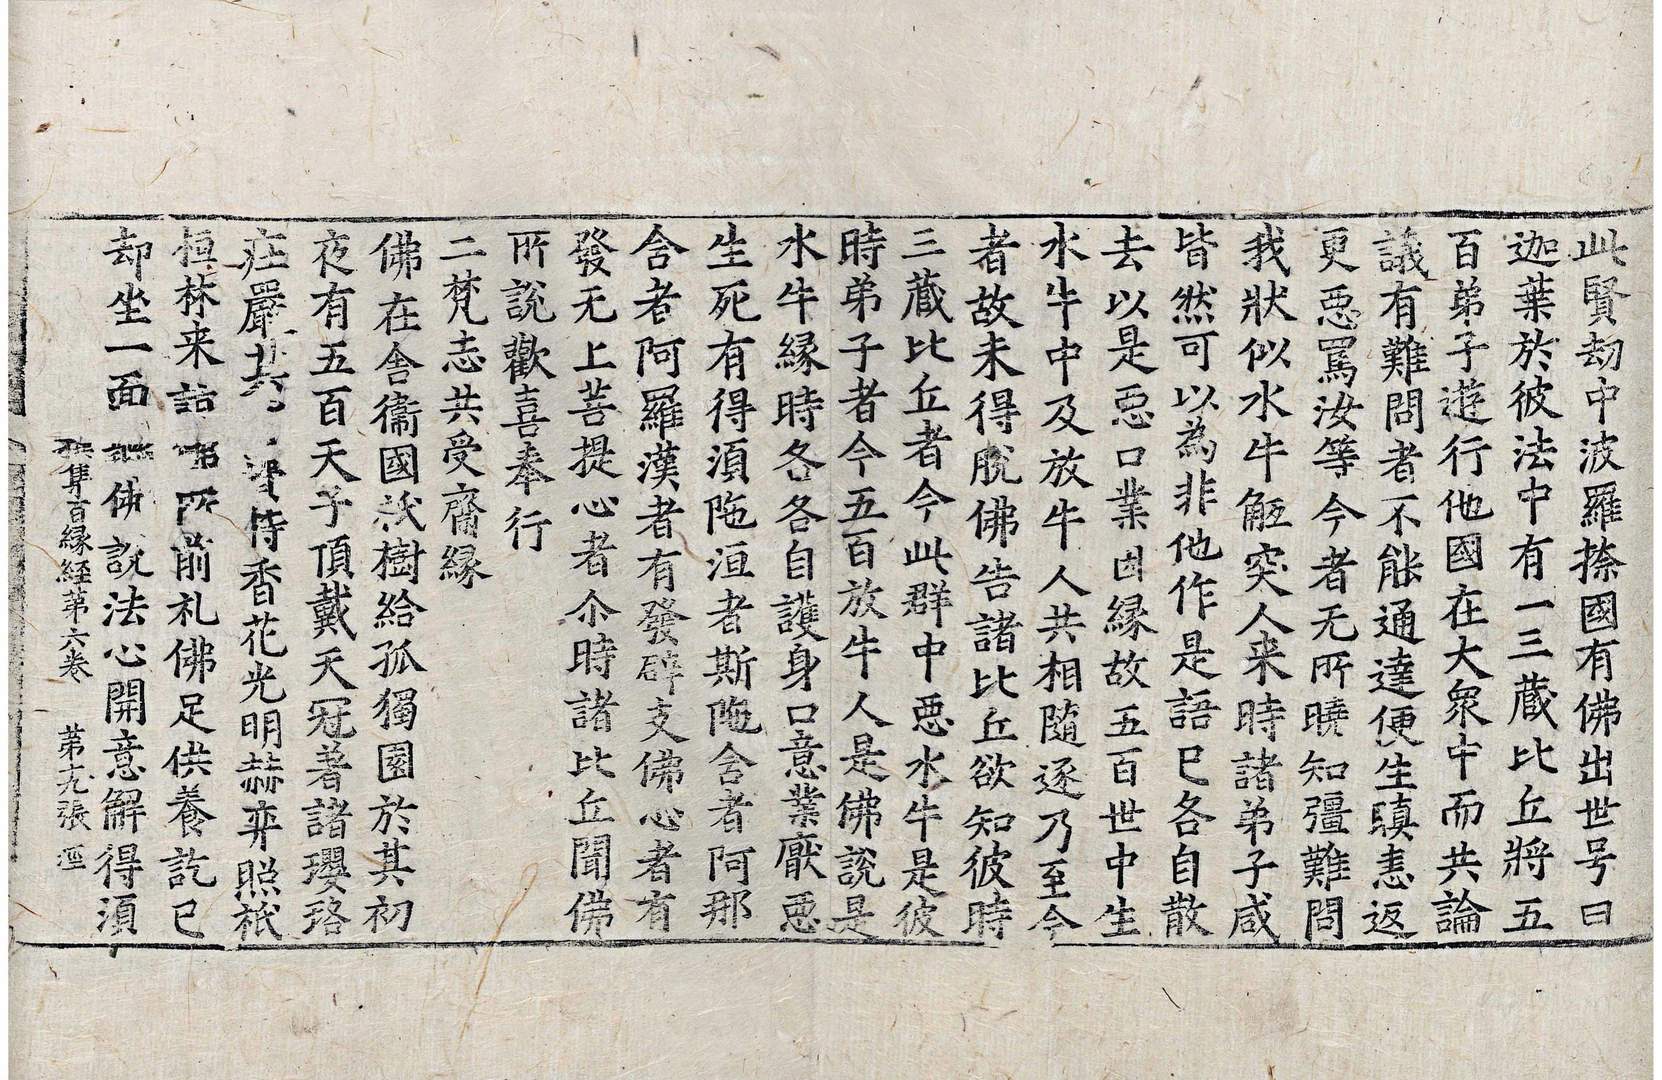 此賢劫中波羅捺國有佛出世号曰
迦葉於彼法中有一三藏比丘將五
百弟子遊行他國在大衆中而共論
議有難問者不能通達便生瞋恚返
更惡罵汝等今者无所曉知彊難問
我狀似水牛觝突人来時諸弟子咸
皆然可以為非他作是語已各自散
去以是惡口業因縁故五百世中生
水牛中及放牛人共相隨逐乃至今
者故未得脫佛告諸比丘欲知彼時
三藏比丘者今此群中惡水牛是彼
時弟子者今五百放牛人是佛說是
水牛縁時各各自護身口意業厭惡
生死有得須陁洹者斯陁含者阿那
含者阿羅漢者有發辟支佛心者有
發无上菩提心者尒時諸比丘聞佛
所說歡喜奉行
二梵志共受齋縁
佛在舎衞國祇樹給孤獨園於其初
夜有五百天子頂戴天冠著諸瓔珞
莊嚴其持香花光明赫弈照祇
桓林来詣佛所前礼佛足供養訖已
却坐一面佛說法心開意解得須
集百縁経第六卷 第十九張 涇